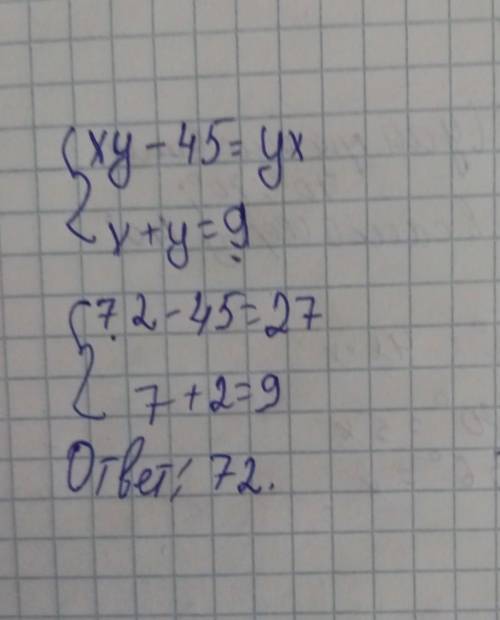 xy - 45 = yx
x + y = 9
72 - 45 = 27
7 + 2 = 9
Ответ: 72.